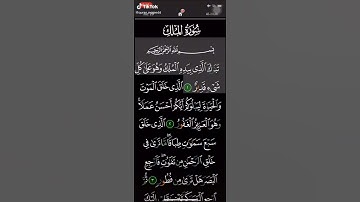 TikTok
سُورَةُ الْمُلْكِ
بِسْمِ اللَّهِ الرَّحْمَٰنِ الرَّحِيمِ
تَبَارَكَ الَّذِي بِيَدِهِ الْمُلْكُ وَهُوَ عَلَىٰ كُلِّ
شَيْءٍ قَدِيرٌ ١ الَّذِي خَلَقَ الْمَوْتَ
وَالْحَيَاةَ لِيَبْلُوَكُمْ أَيُّكُمْ أَحْسَنُ عَمَلًا
وَهُوَ الْعَزِيزُ الْغَفُورُ ٢ الَّذِي خَلَقَ
سَبْعَ سَمَاوَاتٍ طِبَاقًا مَّا تَرَىٰ فِي
خَلْقِ الرَّحْمَٰنِ مِن تَفَاوُتٍ فَارْجِعِ
الْبَصَرَ هَلْ تَرَىٰ مِن فُطُورٍ ٣ ثُمَّ
ارْجِعِ الْبَصَرَ